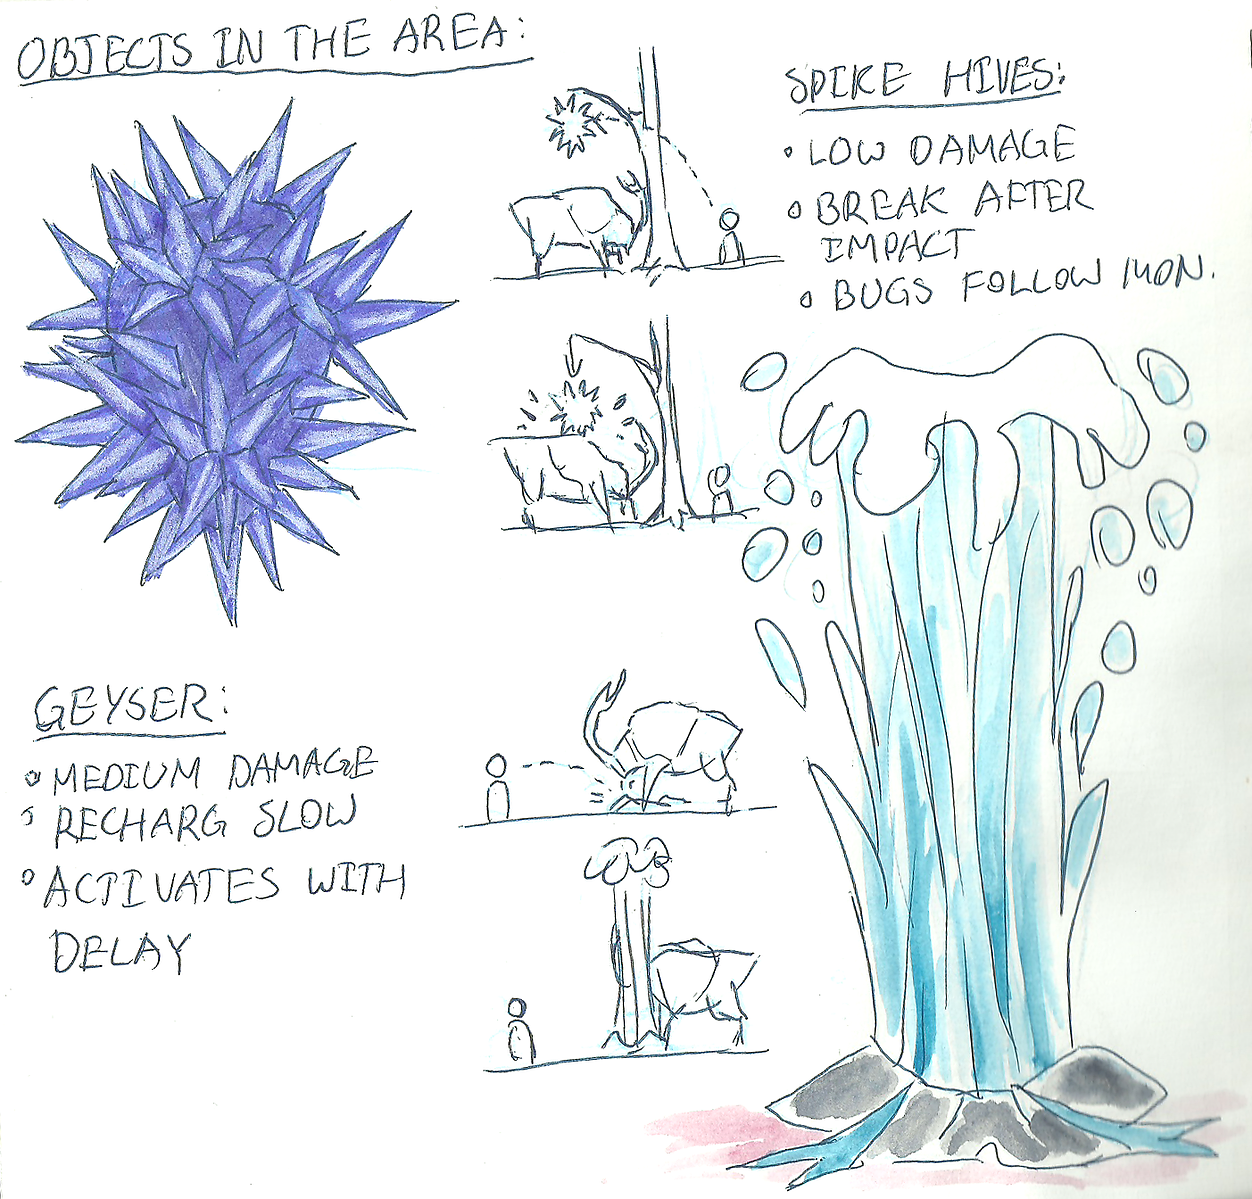 OBJECTS IN THE AREA:
SPIKE HIVES:
• LOW DAMAGE
• BREAK AFTER
IMPACT
• BUGS FOLLOW MON.
GEYSER:
• MEDIUM DAMAGE
• RECHARG SLOW
• ACTIVATES WITH
DELAY